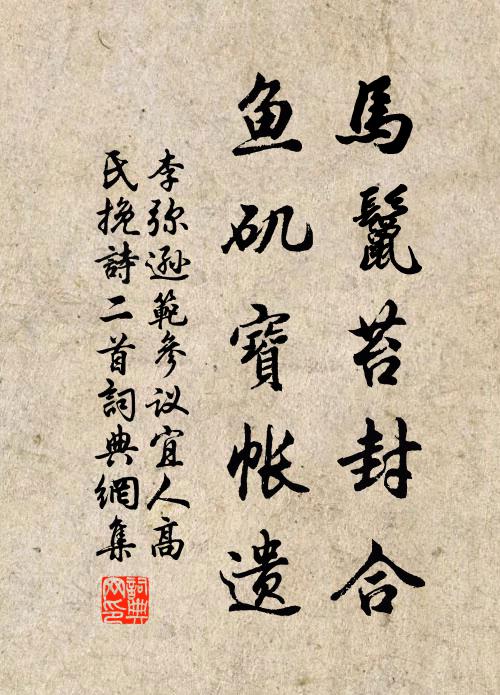 馬鬣苔封合
鱼矶寶帐遗
李弥遜範參议宜人高
氏挽詩二首詞典網集
詞典网印